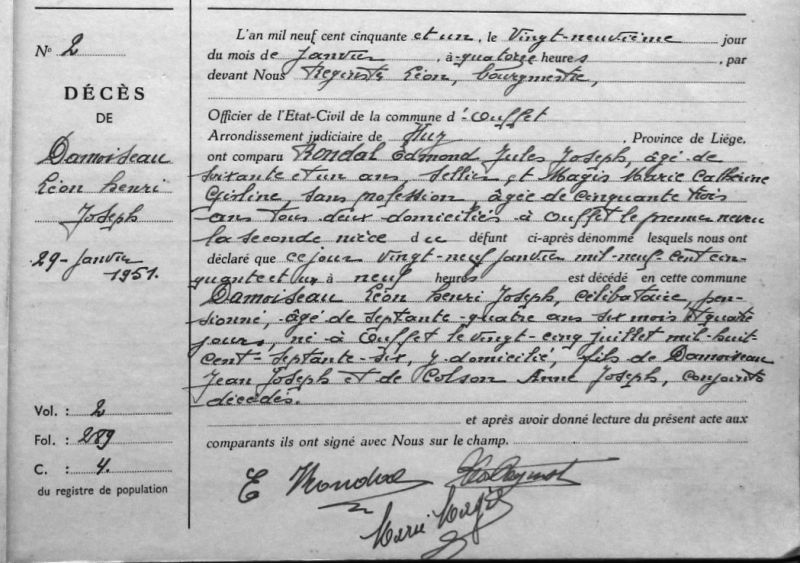 N° 2
DÉCÈS
DE
Damoiseau
Léon Henri
Joseph
29 - Janvier
1951.
Vol. : 2
Fol. : 289
C. : 4.
du registre de population
L'an mil neuf cent cinquante et un, le Vingt-neuvième jour
du mois de Janvier, à quatorze heures, par
devant Nous Léon, bourgmestre,
Officier de l'Etat-Civil de la commune d'Ouffet
Arrondissement judiciaire de Huy, Province de Liége,
ont comparu Rondal Edmond Jules Joseph, âgé de
soixante et un ans, sellier, et Magis Marie Catherine
Ghisline, sans profession, âgée de cinquante trois
ans tous deux domiciliés à Ouffet le premier neveu
la seconde nièce du défunt ci-après dénommé lesquels nous ont
déclaré que ce jour vingt-neuf janvier mil-neuf-cent cin-
quante et un à neuf heures est décédé en cette commune
Damoiseau Léon Henri Joseph, célibataire, pen-
sionné, âgé de septante-quatre ans six mois et quatre
jours, né à Ouffet le vingt-cinq juillet mil-huit-
cent-septante-six, y domicilié, fils de Damoiseau
Jean Joseph et de Colson Anne Joseph, conjoints
décédés.
et après avoir donné lecture du présent acte aux
comparants ils ont signé avec Nous sur le champ.
E Rondal
Marie Magis